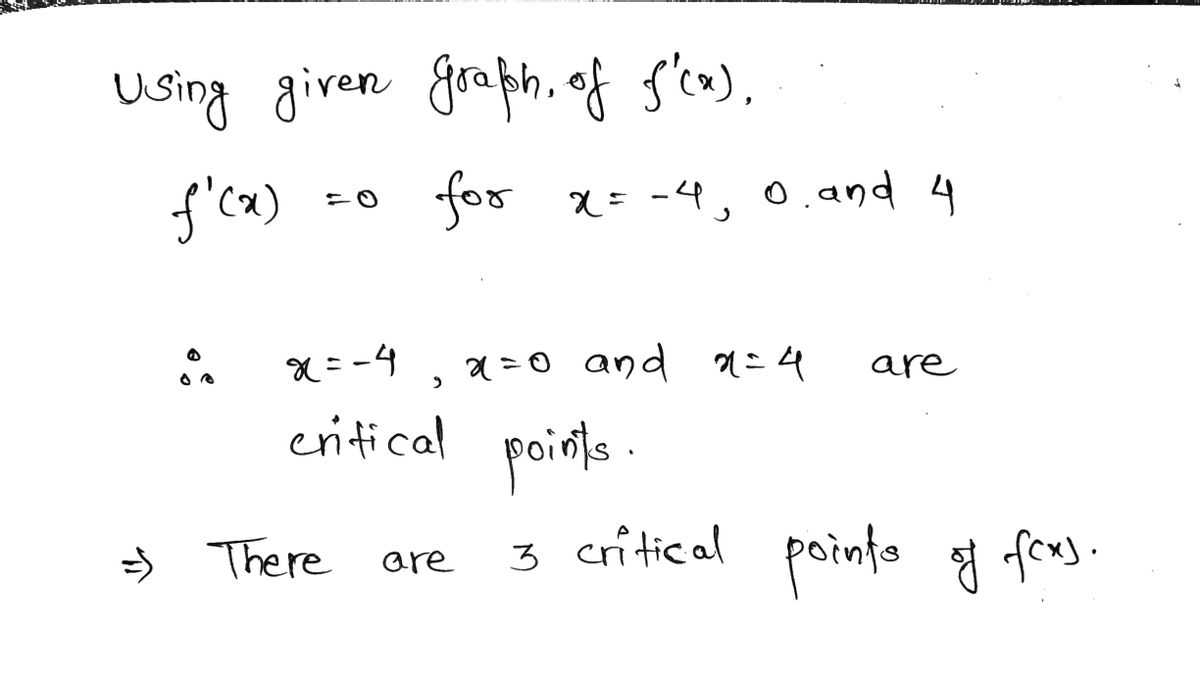 Using given graph, of f'(x),
f'(x) = 0 for x = -4, 0. and 4
∴ x = -4, x = 0 and x = 4 are
critical points.
⇒ There are 3 critical points of f(x).